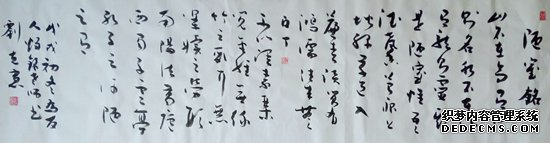 陋室铭
山不在高有仙
则名水不在深
有龙则灵斯
是陋室惟吾
德馨苔痕上
阶绿草色入
帘青谈笑有
鸿儒往来无
白丁
可以调素琴
阅金经无丝
竹之乱耳无案
牍之劳形
南阳诸葛庐
西蜀子云亭
孔子云何陋
之有
戊戌初冬为友
人
劉
织梦内容管理系统
DEDECMS.COM